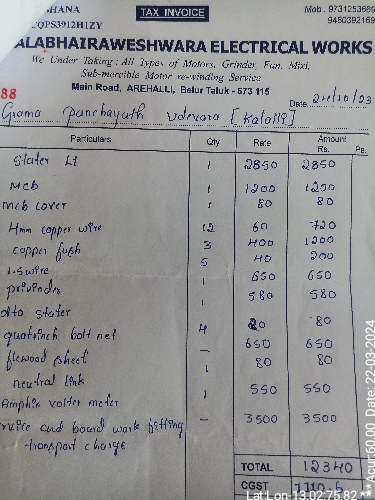 GHANA
TAX INVOICE
Mob: 9731253689
QPS3912H1ZY
9480392169
ALABHAIRAWESHWARA ELECTRICAL WORKS
We Under Taking: All Types of Motors, Grinder, Fan, Mixi,
Sub-mercible Motor re-winding Service
Main Road, AREHALLI, Belur Taluk - 573 115
88
Date 24/10/23
Grama Panchayath Udevara
Particulars Qty Rate Amount Rs. Ps.
Stater L1 1 2850 2850
mcb 1 1200 1200
mcb cover 1 80 80
4mm copper wire 12 60 720
copper fush 3 400 1200
1.5 wire 5 40 200
1 650 650
1 580 580
otto stater
quatrinch bolt net 4 20 80
flewood sheet - 650 650
neutral link 1 80 80
Amphin volter meter 1 550 550
and board work fitting - 3500 3500
transport charge
TOTAL 12340
CGST 1110.6
Lat Lon 13.02,75.82 *** Acut 60.00 Date, 22-03-2024